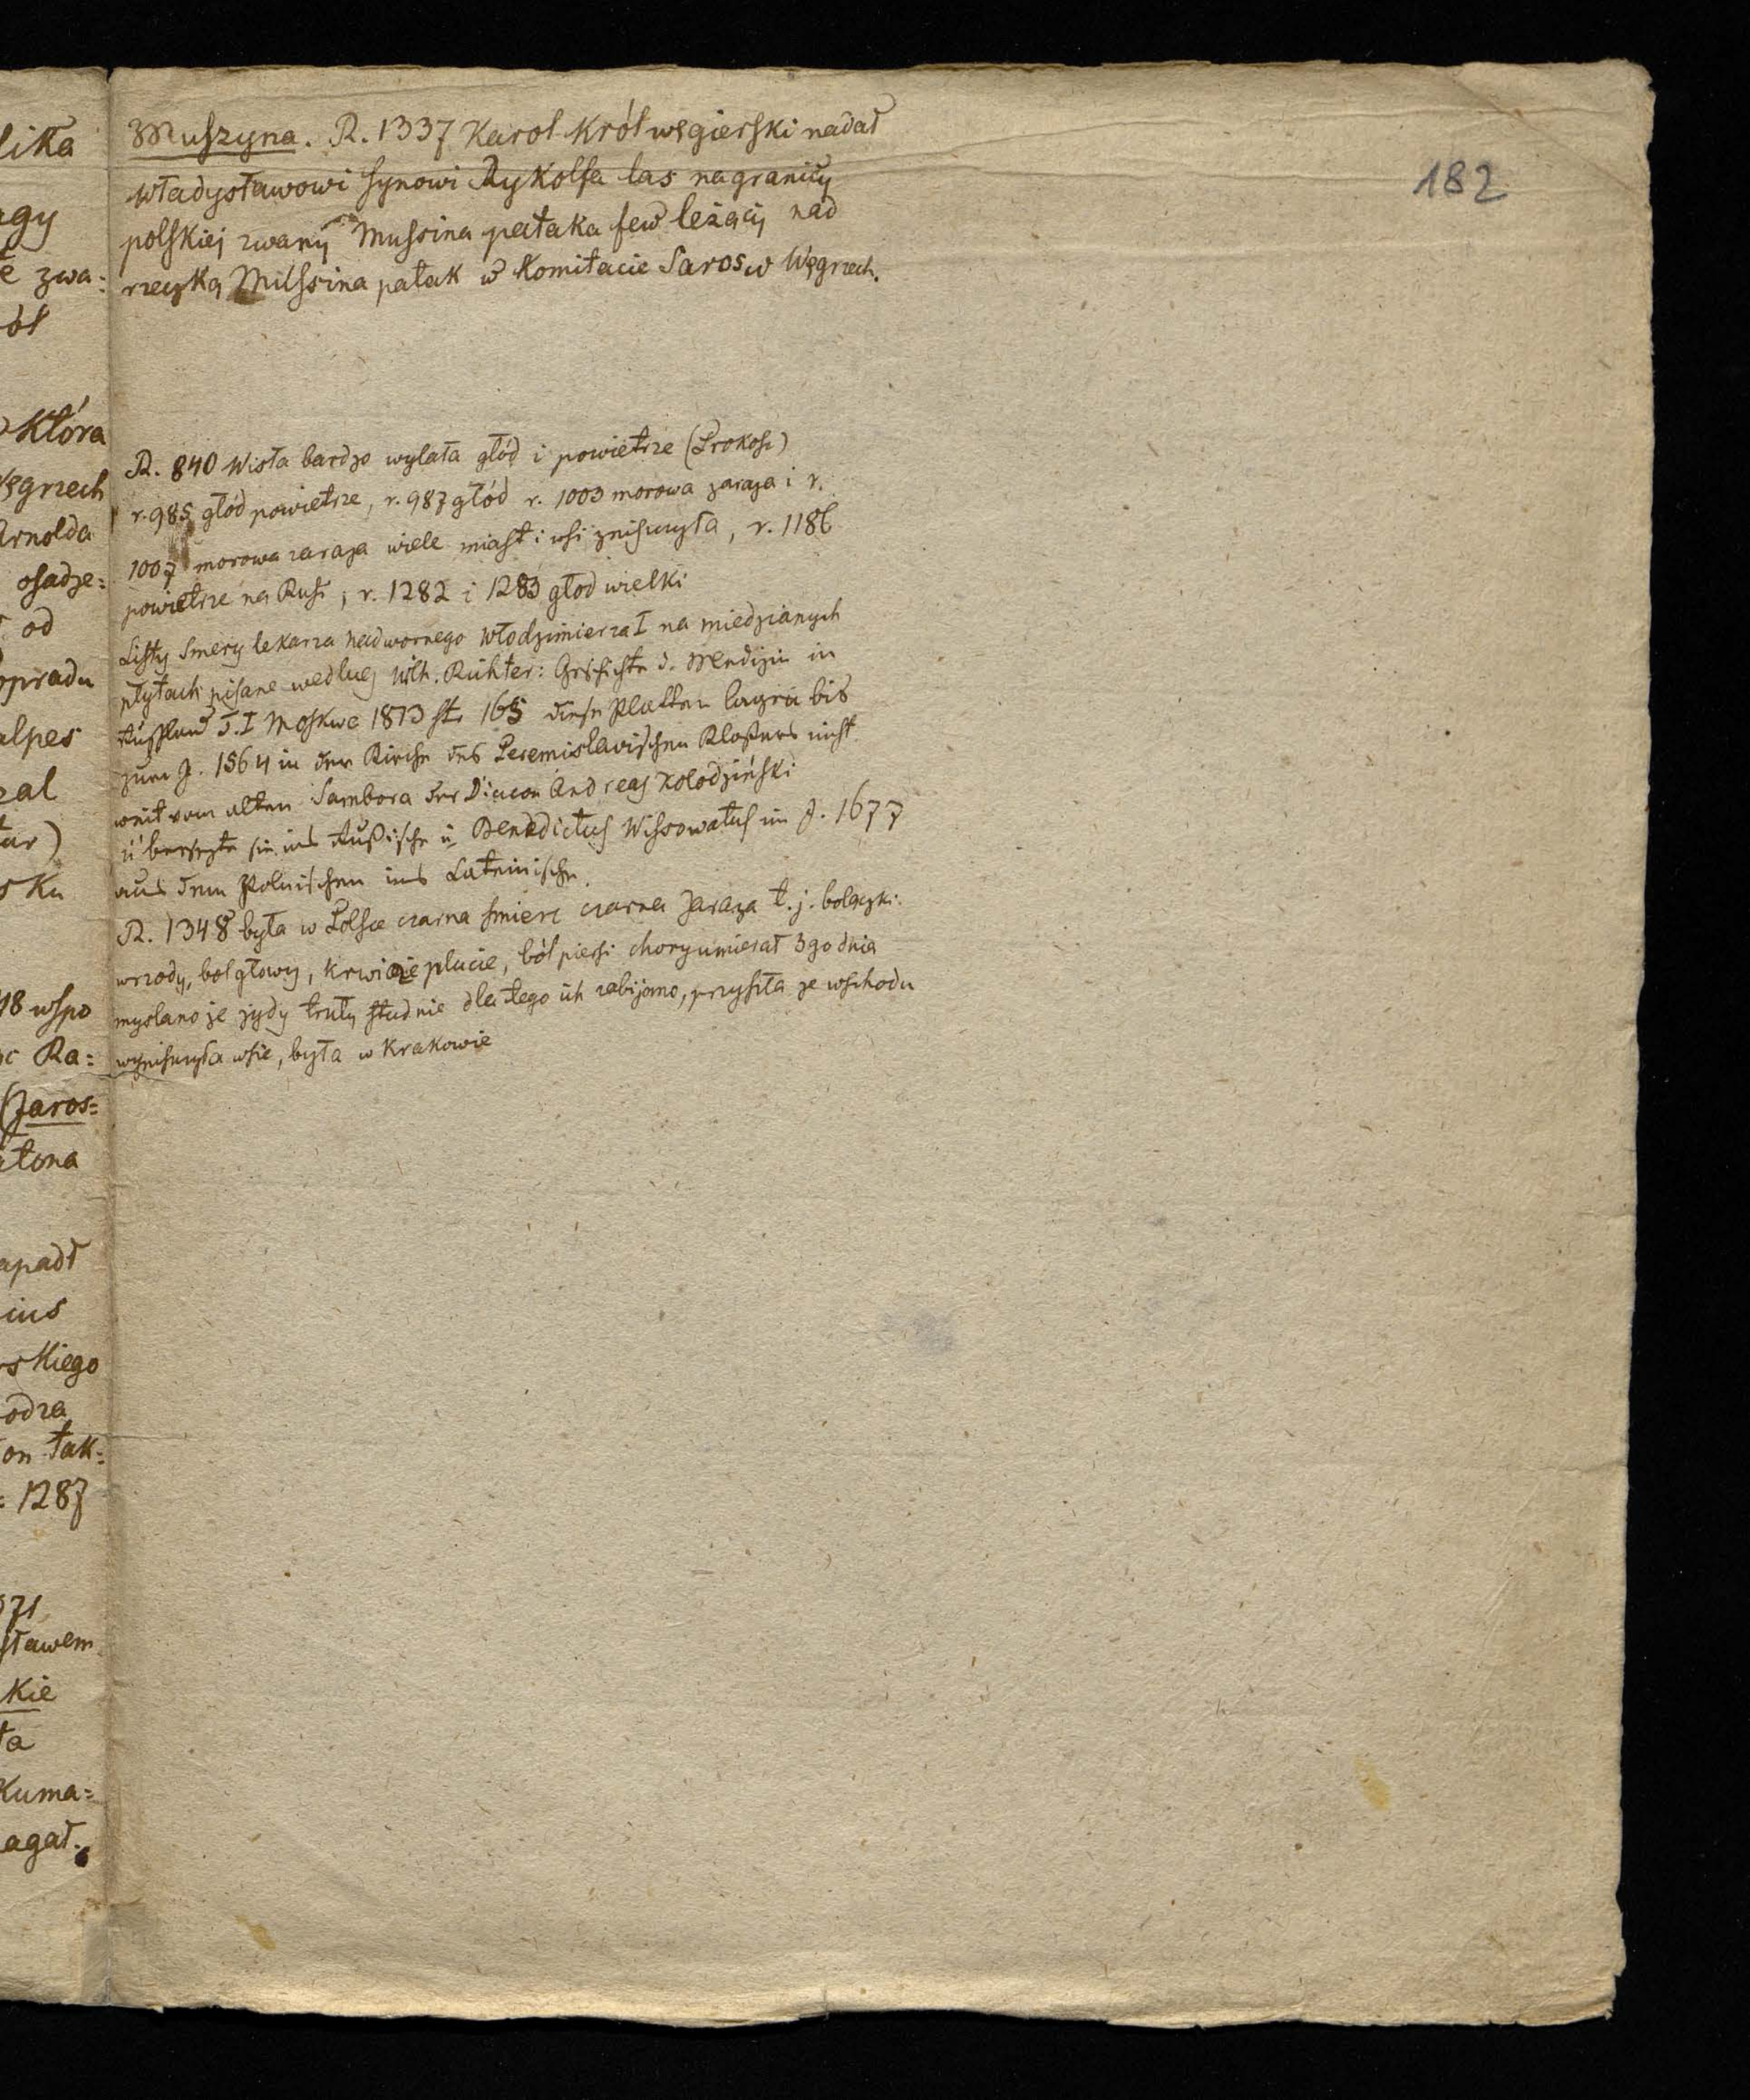 182
Muszyna. R. 1337 Karol Król węgierski nadał
Władysławowi synowi Rykolfa las na granicy
polskiej zwany Mussina pataka few leżący nad
rzeczką Mussina patak w Komitacie Saros w Węgrzech.
R. 840 Wisła bardzo wylała głód i powietrze (Prokosz)
r. 985 głód powietrze, r. 987 głód r. 1003 morowa zaraza i r.
1007 morowa zaraza wiele miast i wsi zniszczyła, r. 1186
powietrze na Rusi, r. 1282 i 1283 głod wielki
Listy Smery lekarza nadwornego Włodzimierza I na miedzianych
płytach pisane według Wilh. Richter: Geschichte d. Medizin in
Rußland T. I Moskwa 1813 st. 165 diese Platten lagen bis
zum J. 1564 in der Kirche des Peremislavischen Klosters nicht
weit vom alten Sambora der Diacon Andreas Kolodziński
übersezte sie ins Rußische u Benedictus Wissowatus im J. 1677
aus dem Polnischen ins Lateinische.
R. 1348 była w Polsce czarna smierc czarna zaraza t. j. bolączki
wrzody, bol głowy, krwi plucie, ból piersi chory umierał 3go dnia
myslano że żydy truły studnie dla tego ich zabijano, przyszła ze wschodu
wyniszczyła wsie, była w Krakowie
lika
agy
zwa:
ół
która
Węgrzech
Arnolda
osadze:
od
opradu
alpes
zal
tur)
sku
48 wspo
Ra:
(Jaros:
atona
apadł
cius
rskiego
odza
on tak:
1287
071
sławem
kie
ła
Kuma:
agał.